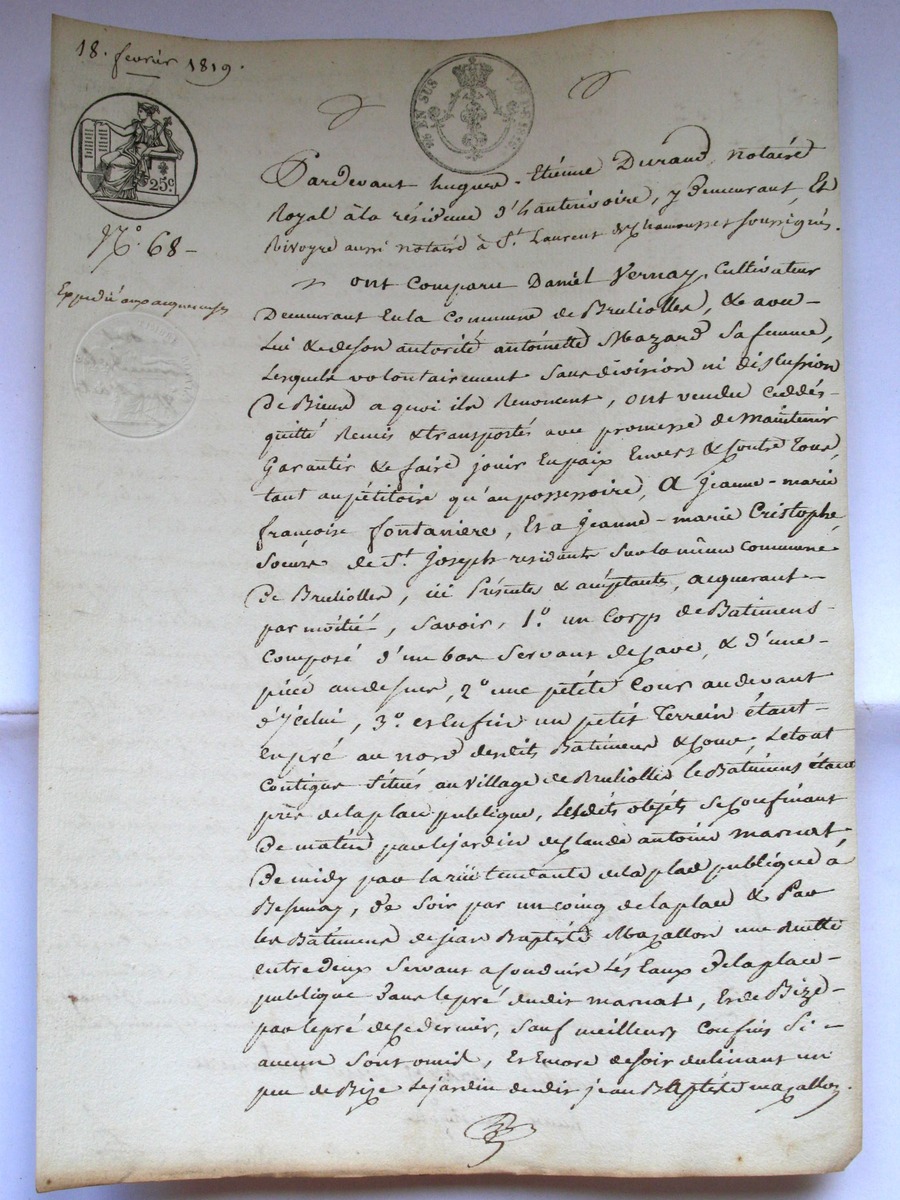 18. fevrier 1819.
EN SUS
25c.
N.° 68 -
Expedié aux acquereuses
Pardevant hugues - Etiénne Durand, notairé
Royal à la résidence d'hauterivoire, y demeurant Et
Rivoyre aussi notairé à St. Laurent de Chamousset soussignés.
ont Comparu Daniel Vernay Cultivateur
Demeurant En la Commune de Brulliolles, & avec
Lui & de son autorité antoinette Mazard Sa femme,
Lesquels volontairement Sans division ni discussion
De Biens a quoi ils Renoncent, ont vendu Ceddés
quitté Remis & transportés avec promesse de Maintenir
Garantir & faire jouir En paix Envers & Contre Tous,
tant au pétitoire qu'au possessoire, A Jeanne-marie
françoise fontaniere, Et a Jeanne-marie Cristophe
Soeurs de St. Joseph residante Sur la même Commune
De Brulliolles, ici Présentes & acceptantes, acquerant
par moitié, Savoir, 1.° un Corps de Batimens
Composé d'un bas Servant de Cave, & d'une
piéce au dessus, 2.° une pétite Cour au devant
d'Jcelui, 3.° et Enfin un petit Terrein étant
En pré au nord desdits Batimens & Cour, Le tout
Contigus Situés au Village de Brulliolles le Batimens étant
près de la place publique, Lesdits objéts Se Confinant
De matin par le jardin de Claude antoine Marnat
De midy par la rüe tendante de la place publique à
Bessenay, De Soir par un coing de la place & Par
les Bâtimens de jean Baptisté Mazallon une Ruelle
entre deux Servant a Conduire Lés Eaux de la place
publique Dans le pré dudit marnat, Et de Bize
par le pré de Ce dernier, Sauf meilleurs Confins Si
aucun Sont omis, Et Encore de Soir declinant un
peu de Bize Le jardin dudit jean Baptisté mazallon.